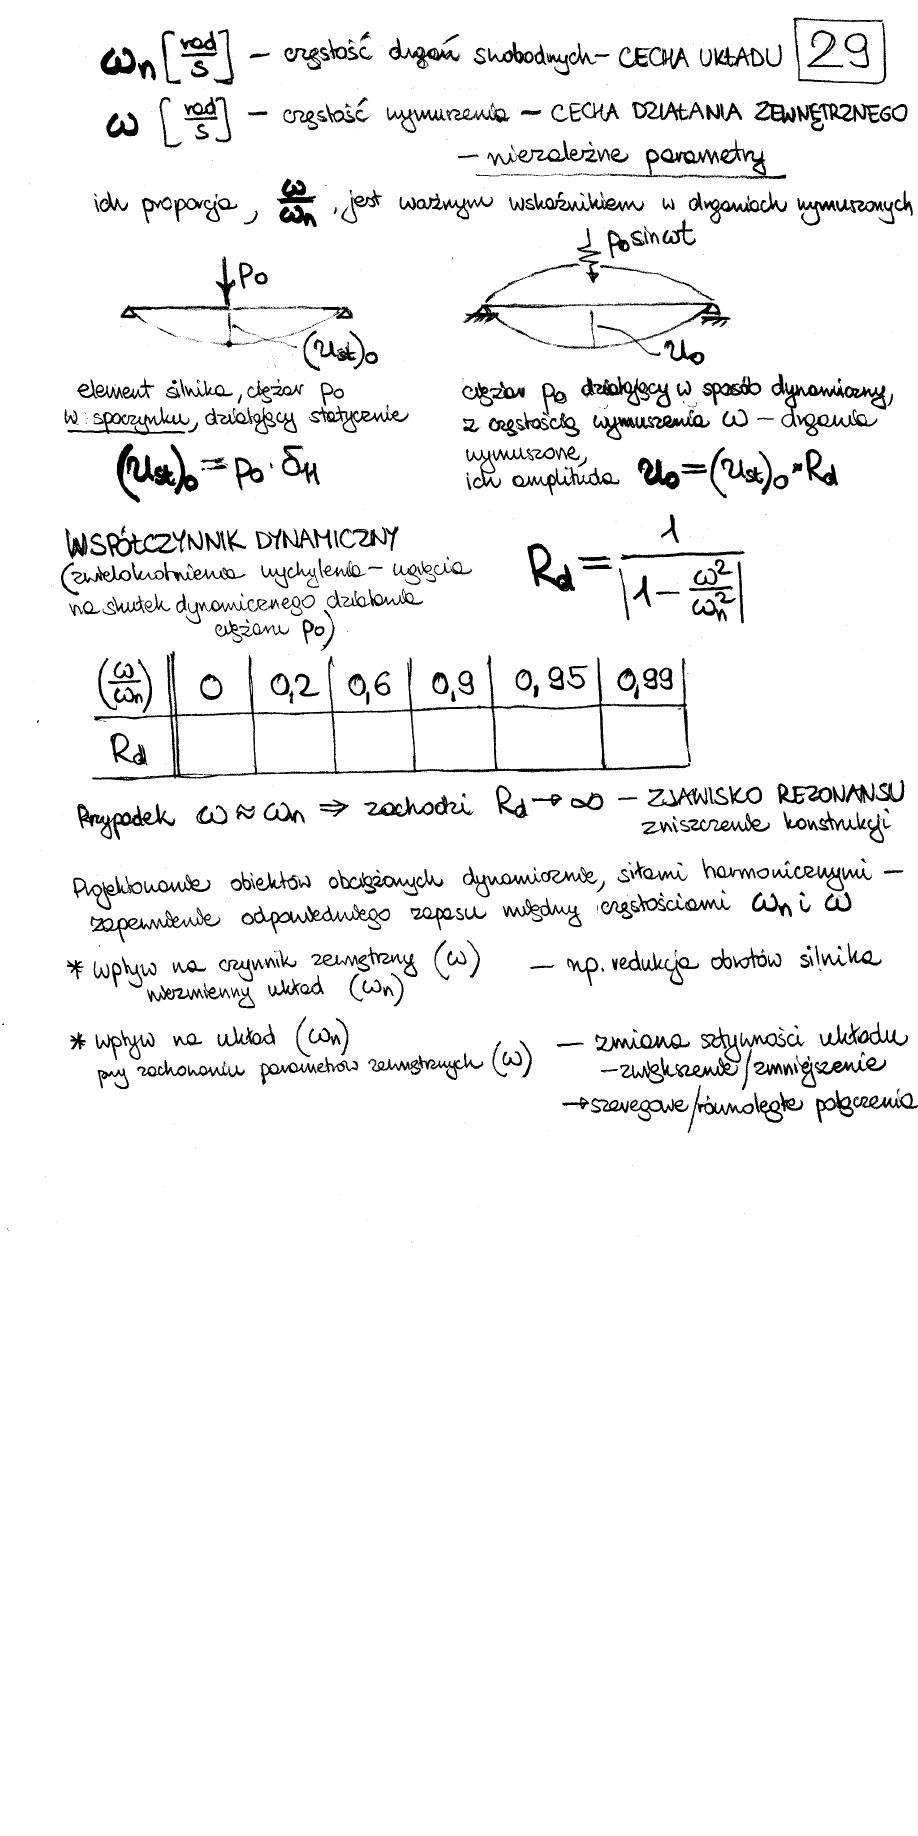 ωn [rad/s] – częstość drgań swobodnych – CECHA UKŁADU 29
ω [rad/s] – częstość wymuszenia – CECHA DZIAŁANIA ZEWNĘTRZNEGO
– niezależne parametry
ich proporcja, ω/ωn, jest ważnym wskaźnikiem w drganiach wymuszonych
P0
(ust)0
P0 sin ωt
u0
element silnika, ciężar P0
w spoczynku, działający statycznie
(ust)0 = P0 · δ11
ciężar P0 działający w sposób dynamiczny,
z częstością wymuszenia ω – drgania
wymuszone,
ich amplituda u0 = (ust)0 · Rd
WSPÓŁCZYNNIK DYNAMICZNY
(zwielokrotnienie wychylenia – ugięcia
na skutek dynamicznego działania
ciężaru P0)
Rd = 1 / |1 – ω²/ωn²|
(ω/ωn) 0 0,2 0,6 0,9 0,95 0,99
Rd
Przypadek ω ≈ ωn ⇒ zachodzi Rd → ∞ – ZJAWISKO REZONANSU
zniszczenie konstrukcji
Projektowanie obiektów obciążonych dynamicznie, siłami harmonicznymi –
zapewnienie odpowiedniego zapasu między częstościami ωn i ω
* wpływ na czynnik zewnętrzny (ω) – np. redukcja obrotów silnika
niezmienny układ (ωn)
* wpływ na układ (ωn) – zmiana sztywności układu
przy zachowaniu parametrów zewnętrznych (ω) – zwiększenie/zmniejszenie
→ szeregowe/równoległe połączenia